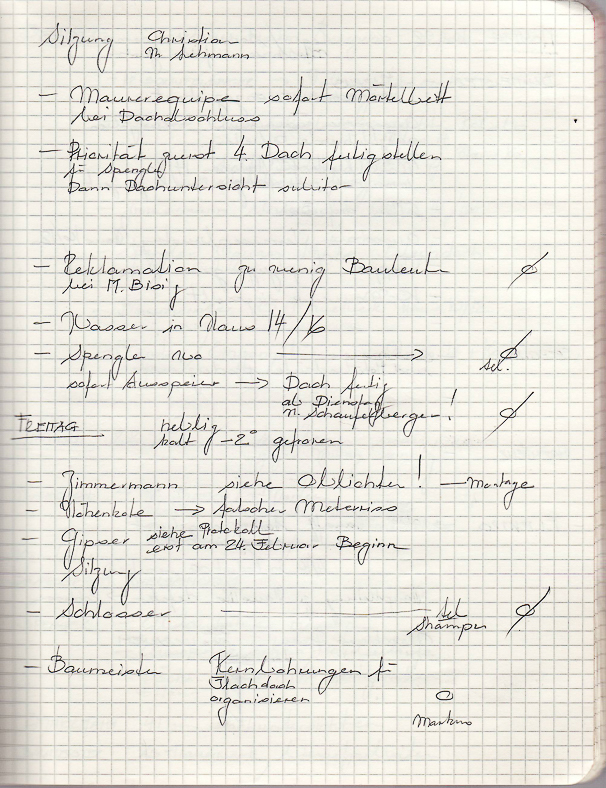 Sitzung Christian
m. Lehmann
- Maurerequipe sofort Mörtelbett
bei Dachabschluss
- Priorität zuerst 4. Dach fertigstellen
f- Spengler
Dann Dachuntersicht
- Reklamation zu wenig Bauleute
bei M.
- Wasser in Haus 14/16
- Spengler wo → tel.
sofort Ausspeier → Dach fertig
ab Dienstag
n. Schaufelberger!
FREITAG neblig
kalt -2° gefroren
- Zimmermann siehe Oblichter! - Montage
- Höhenkote → falscher Meterriss
- Gipser siehe Protokoll
erst am 24. Februar Beginn
Sitzung
- Schlosser Tel
- Baumeister Kernbohrungen f-
Flachdach
organisieren
Markus